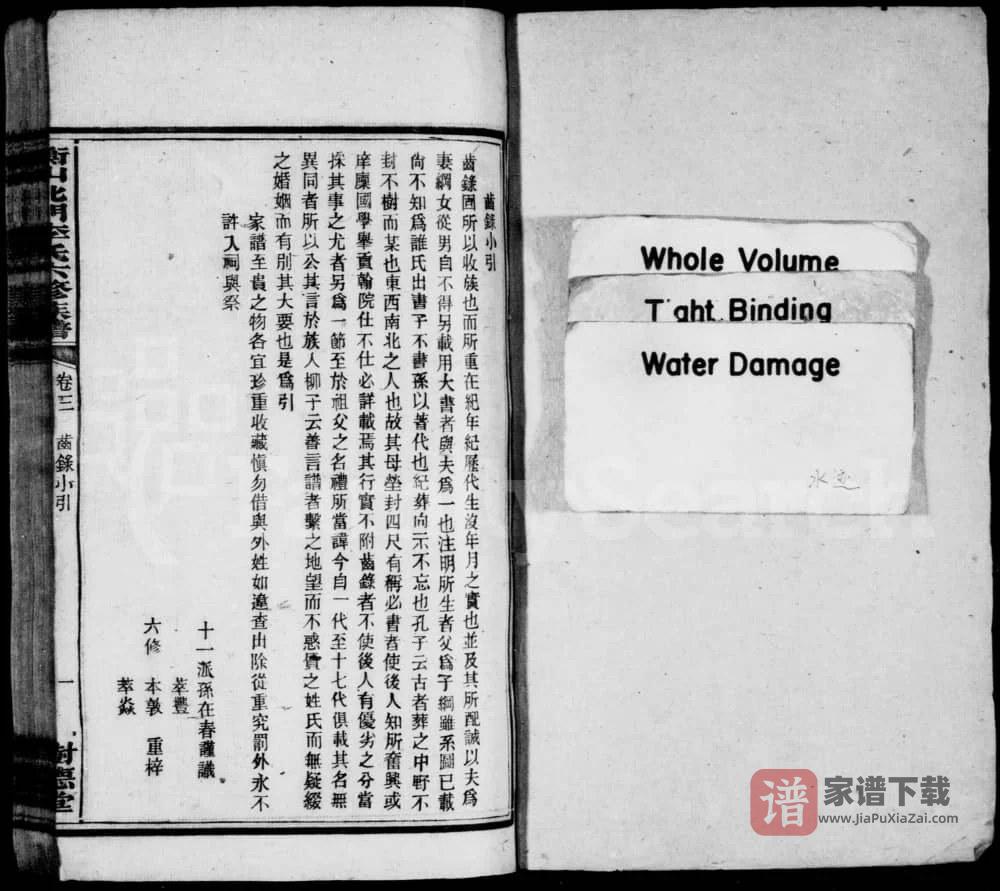 齒錄小引
齒錄圖所以收族也而所重在紀年紀歷代生沒年月之實也並及其所配誠以夫為
妻綱女從男自不得另載用大書者與夫爲一也注明所生者父爲子綱雖系圖已載
尙不知爲誰氏出書子不書孫以著代也紀葬向示不忘也孔子云古者葬之中野不
封不樹而某也東西南北之人也故其母塋封四尺有稱必書者使後人知所奮興或
庠廩國學舉貢翰院仕不仕必詳載焉其行實不附齒錄者不使後人有優劣之分當
採其事之尤者另爲一節至於祖父之名禮所當諱今自一代至十七代俱載其名無
異同者所以公其言於族人柳子云善言譜者繫之地望而不惑質之姓氏而無疑綴
之婚姻而有別其大要也是爲引
家譜至貴之物各宜珍重收藏愼勿借與外姓如違查出除從重究罰外永不
許入祠與祭
十一派孫在春謹議
萃豐
六修 本敦 重梓
萃焱
衡山北門李氏六修族譜
卷三 齒錄小引
一
樹德堂
Whole Volume
T ght Binding
Water Damage
水迹
譜
家谱下载
www.JiaPuXiaZai.com
FamilySearch